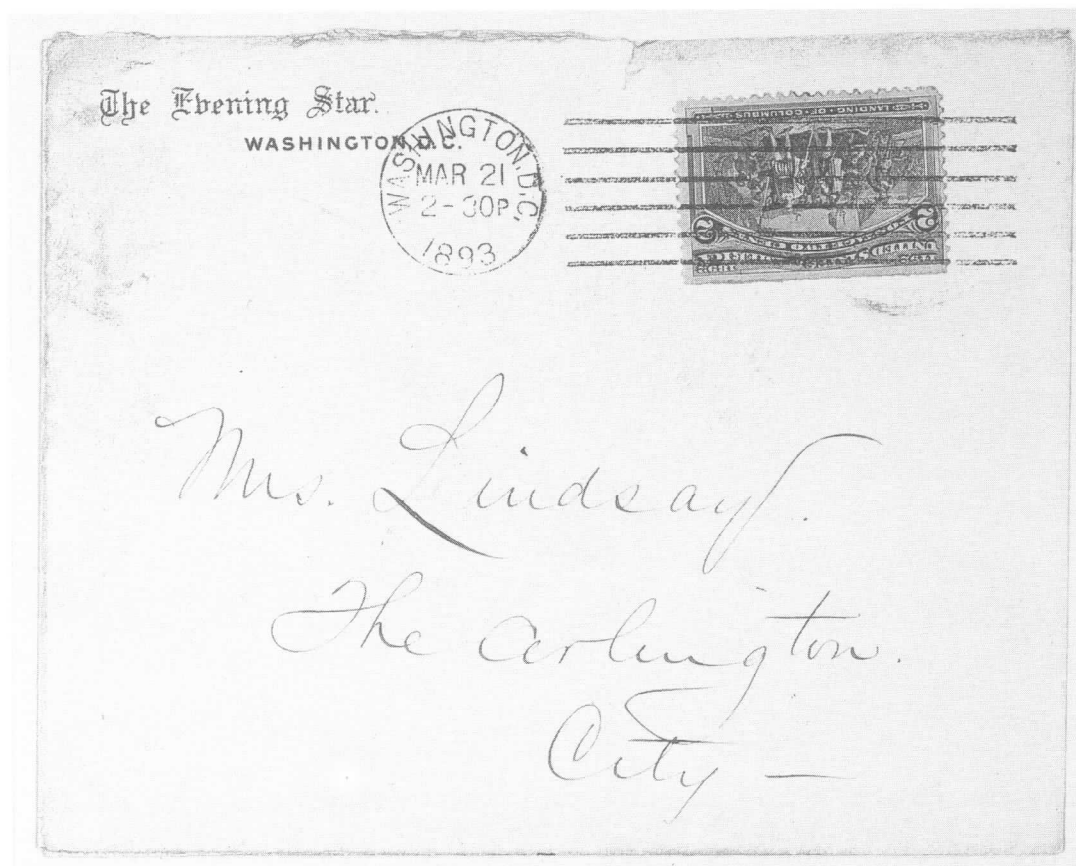 The Evening Star.
WASHINGTON, D.C.
WASHINGTON, D.C.
MAR 21
2-30P
1893
LANDING OF COLUMBUS
2 2
UNITED STATES OF AMERICA
Mrs. Lindsay.
The Arlington.
City —